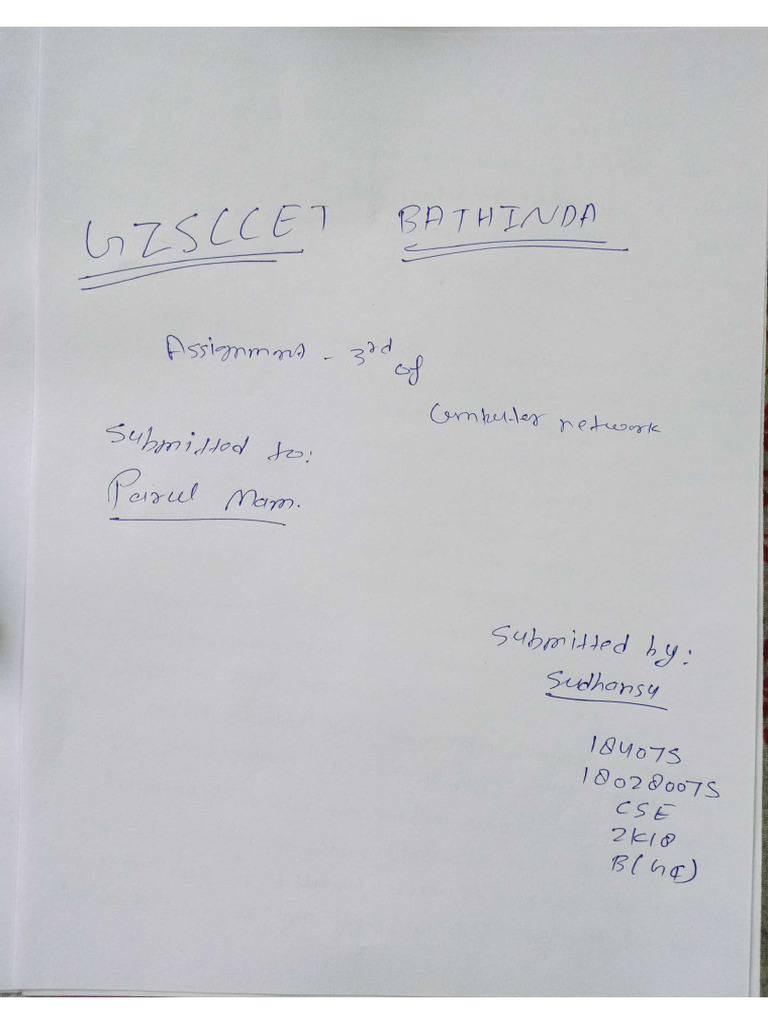 GZSCCET BATHINDA
Assignment - 3rd
of
Computer network
Submitted to:
Parul Mam.
Submitted by:
Sudhansu
184075
180280075
CSE
2K18
B(G¢)